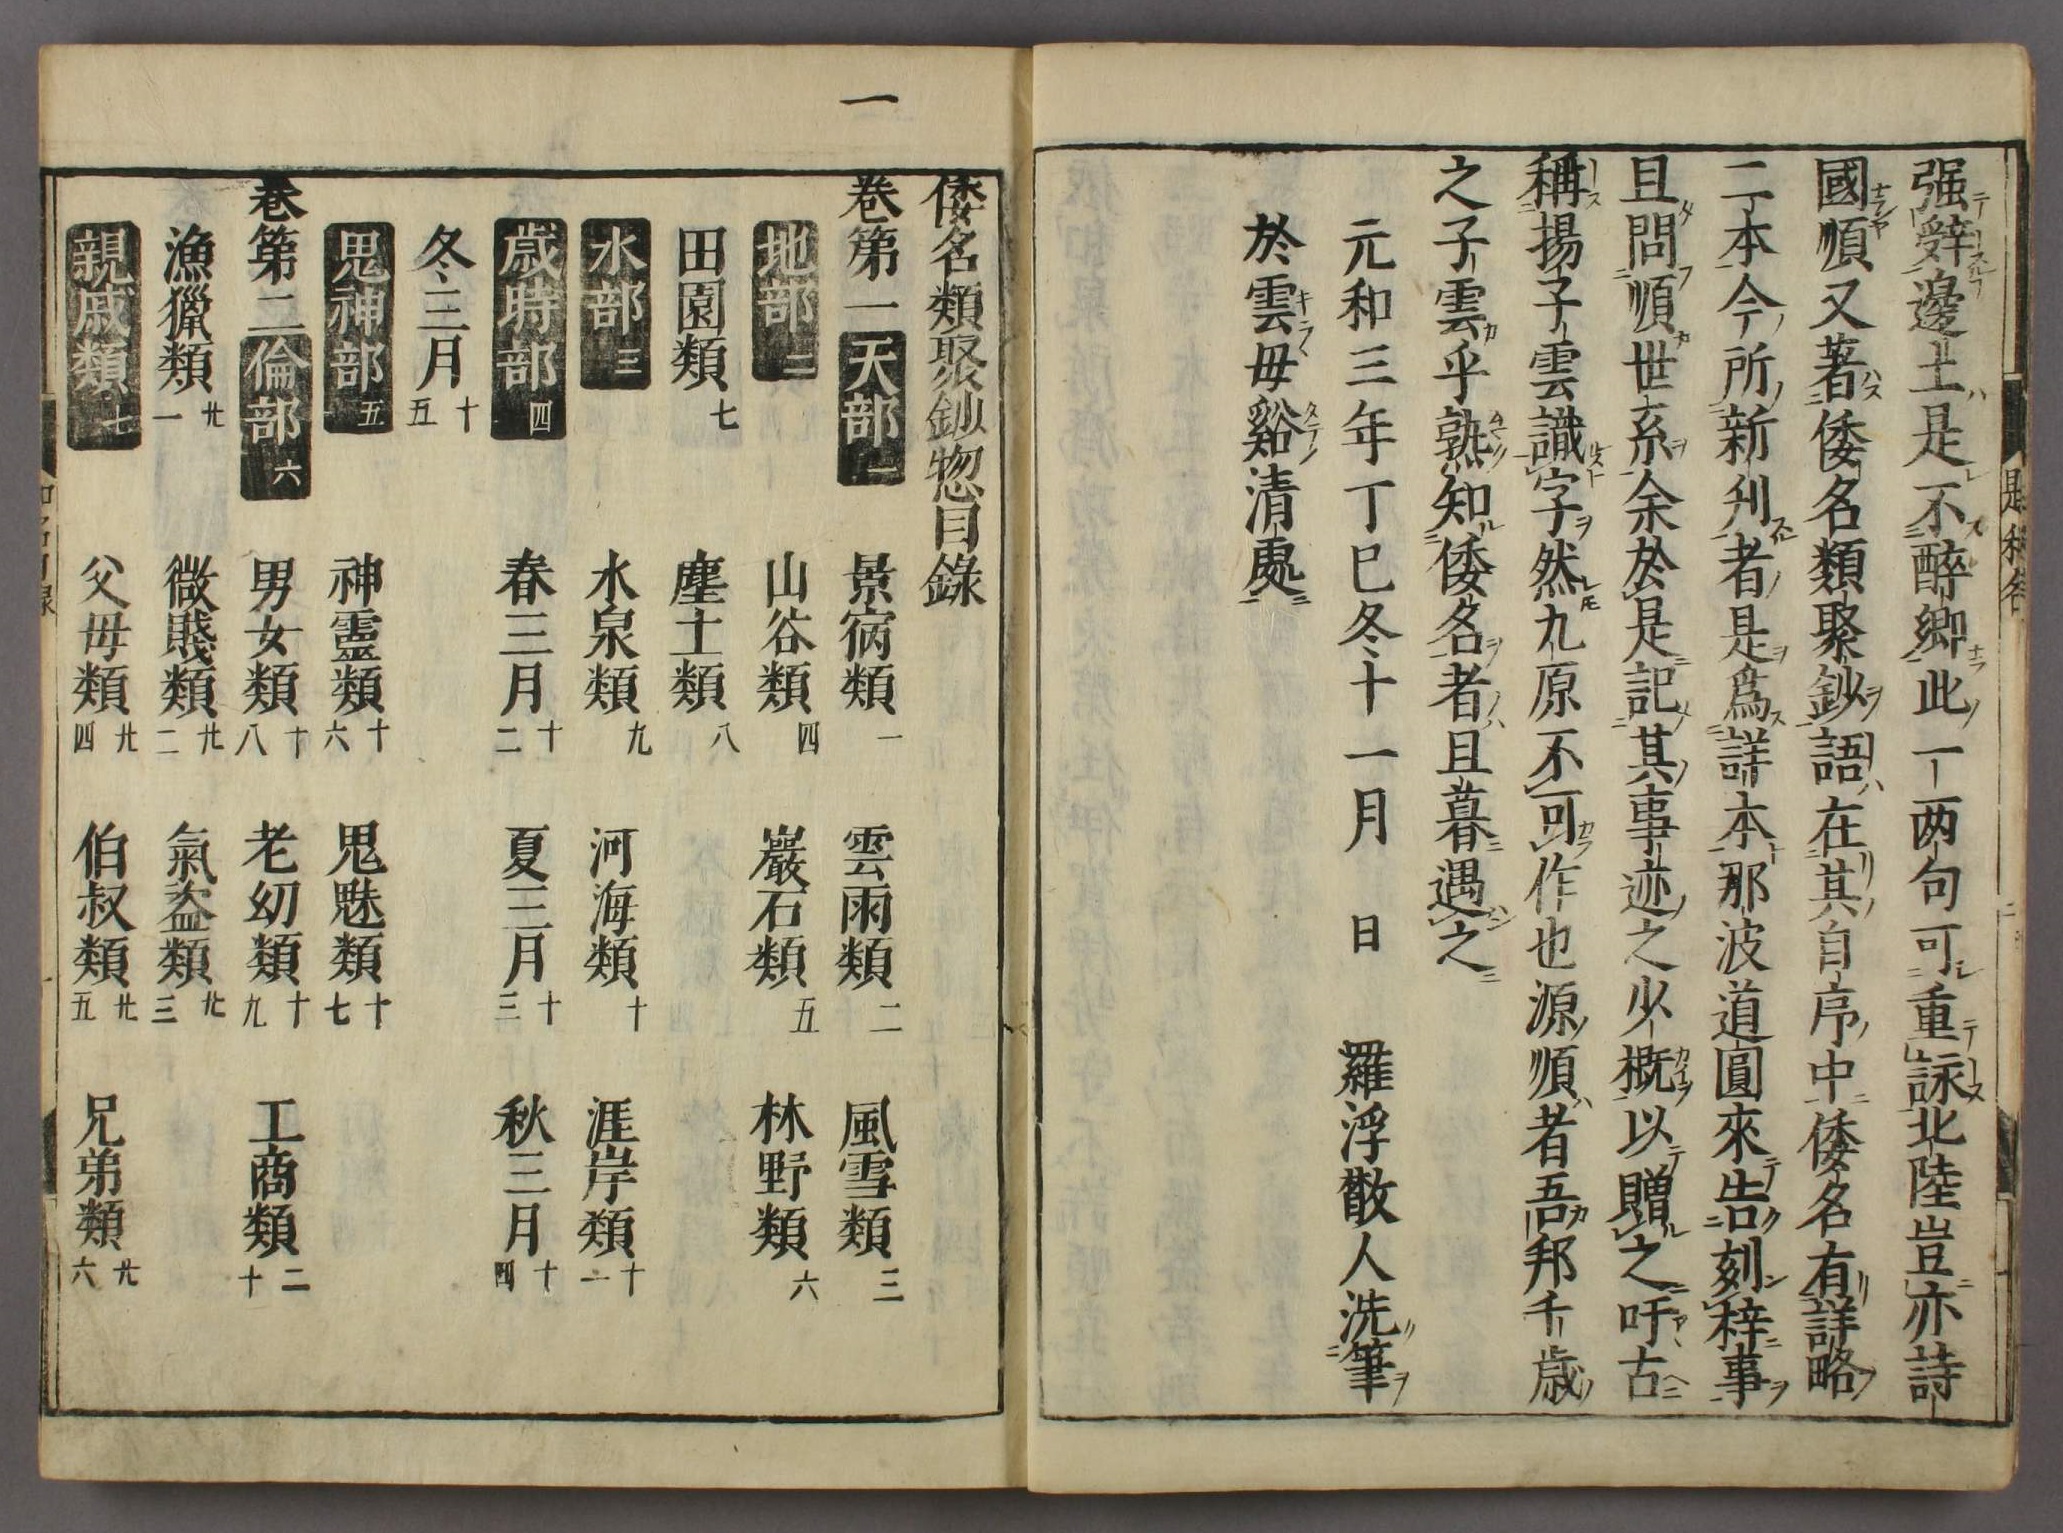 强辤邊土是不醉鄉此一两句可重詠北陸豈亦詩
國順又著倭名類聚鈔語在其自序中倭名有詳略
二本今所新刋者是爲詳本那波道圓來告刻梓事
且問順世系余於是記其事迹之少概以贈之吁古
稱揚子雲識字然九原不可作也源順者吾邦千歳
之子雲乎熟知倭名者且暮遇之
元和三年丁巳冬十一月 日 羅浮散人洗筆
於雲母谿清處
一
倭名類聚鈔惣目錄
卷第一 天部一 景宿類一 雲雨類二 風雪類三
地部二 山谷類四 巖石類五 林野類六
田園類七 塵土類八
水部三 水泉類九 河海類十 涯岸類十一
歳時部四 春三月十二 夏三月十三 秋三月十四
冬三月十五
鬼神部五 神靈類十六 鬼魅類十七
卷第二 倫部六 男女類十八 老幼類十九 工商類二十
漁獵類廿一 微賤類廿二 氣盗類廿三
親戚類七 父母類廿四 伯叔類廿五 兄弟類廿六